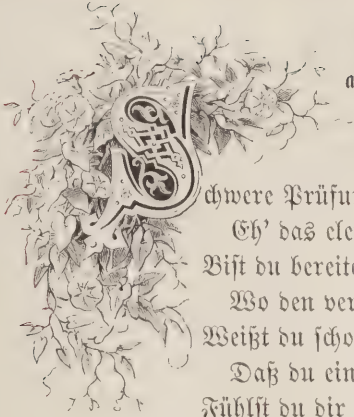 a
Schwere Prüfu
Eh' das ele
Bist du bereite
Wo den ver
Weißt du scho
Daß du ein
Fühlst du dir